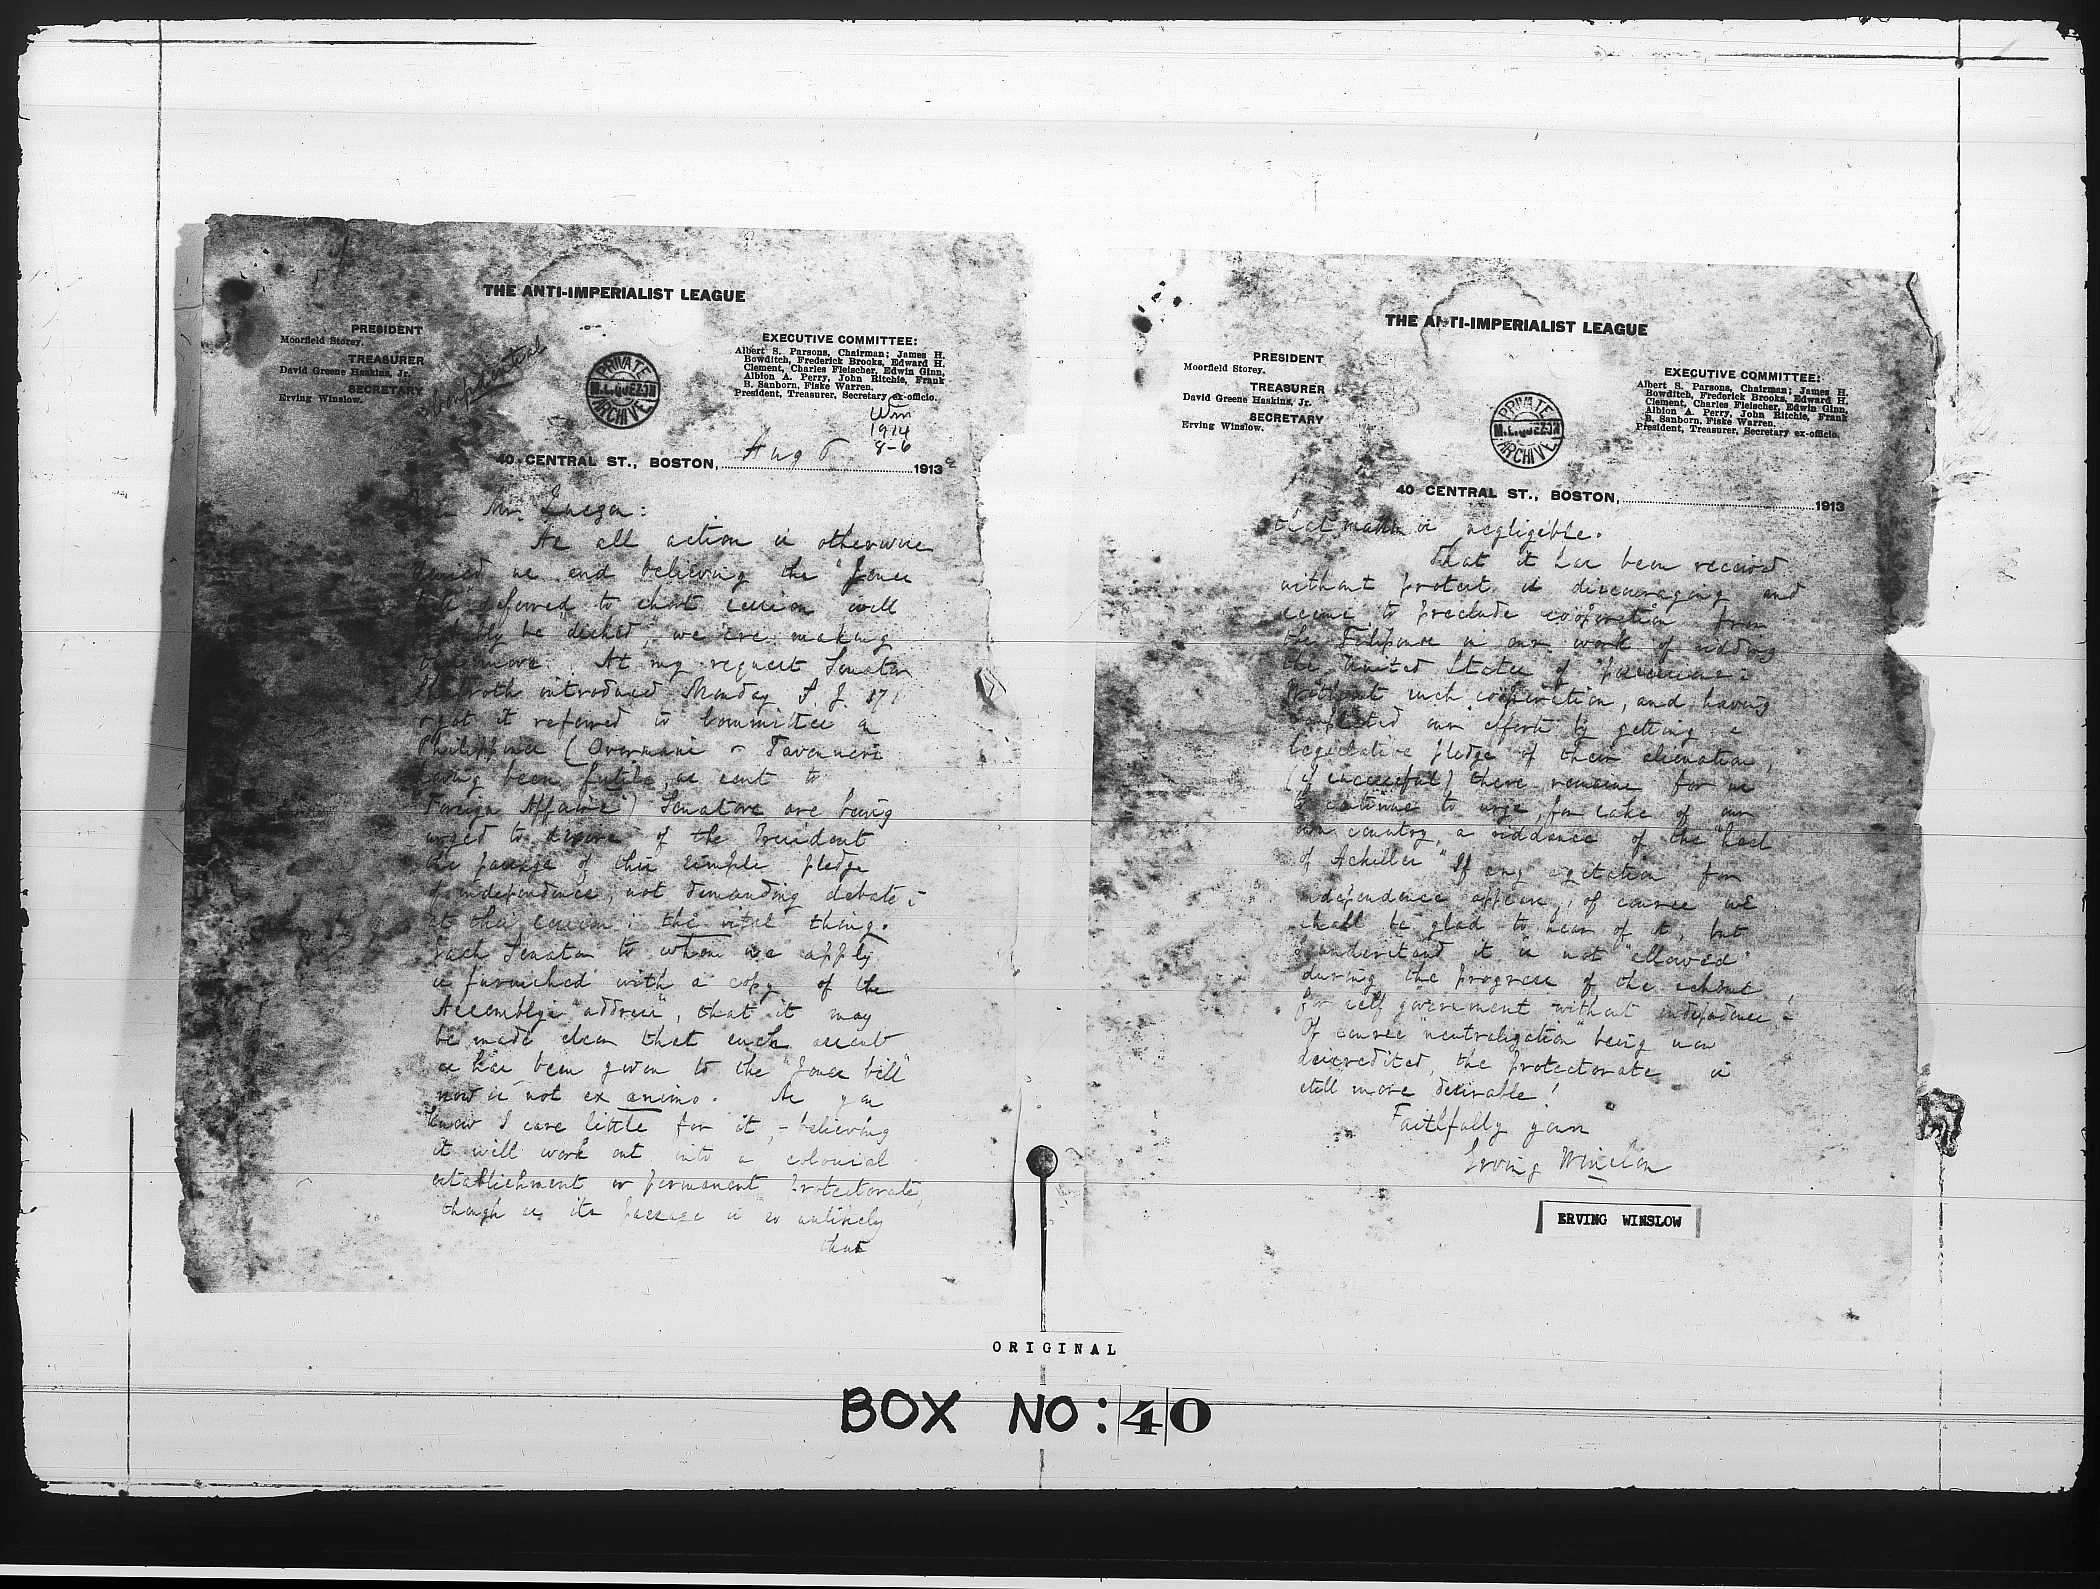 THE ANTI-IMPERIALIST LEAGUE
PRESIDENT
Moorfield Storey.
TREASURER
David Greene Haskins, Jr.
SECRETARY
Erving Winslow.
Confidential
PRIVATE
M.L.QUEZON
ARCHIVE
EXECUTIVE COMMITTEE:
Albert S. Parsons, Chairman; James H.
Bowditch, Frederick Brooks, Edward H.
Clement, Charles Fleischer, Edwin Ginn,
Albion A. Perry, John Ritchie, Frank
B. Sanborn, Fiske Warren.
President, Treasurer, Secretary ex-officio.
Win
1914
8-6
40 CENTRAL ST., BOSTON, Aug 6 1913
Mr. Quezon:
As all action is otherwise
denied us and believing the "Jones
bill" deferred to short session will
be "ditched", we are making
this move. At my request Senator
Shafroth introduced Monday S J 171
& got it referred to Committee on
Philippines (Overman's & Tavenner's
having been futile, as sent to
Foreign Affairs) Senators are being
urged to desire of the President
the passage of this simple pledge
of independence, not demanding debate;
at this session: the vital thing.
Each Senator to whom we apply
is furnished with a copy of the
Assembly's "address", that it may
be made clear that such assent
as has been given to the "Jones bill"
now is not ex animo. As you
know I care little for it, - believing
it will work out into a colonial
establishment or permanent protectorate,
though as its passage is so unlikely
that
THE ANTI-IMPERIALIST LEAGUE
PRESIDENT
Moorfield Storey.
TREASURER
David Greene Haskins, Jr.
SECRETARY
Erving Winslow.
PRIVATE
M.L.QUEZON
ARCHIVE
EXECUTIVE COMMITTEE:
Albert S. Parsons, Chairman; James H.
Bowditch, Frederick Brooks, Edward H.
Clement, Charles Fleischer, Edwin Ginn,
Albion A. Perry, John Ritchie, Frank
B. Sanborn, Fiske Warren.
President, Treasurer, Secretary ex-officio.
40 CENTRAL ST., BOSTON, 1913
that matter is negligible.
That it has been received
without protest is discouraging and
seems to preclude coöperation from
the Filipinos in our work of ridding
the United States of
Without such coöperation, and having
completed our effort by getting a
legislative pledge of their alienation,
(if successful) there remains for us
to continue to urge, for sake of our
own country, a riddance of the "heel
of Achilles" If any agitation for
independence appears, of course we
shall be glad to hear of it, but
I understand it is not "allowed"
during the progress of the scheme
for self government without independence!
Of course "neutralization" being now
discredited, the protectorate is
still more desirable!
Faithfully yours
Erving Winslow
ERVING WINSLOW
ORIGINAL
BOX NO: 40